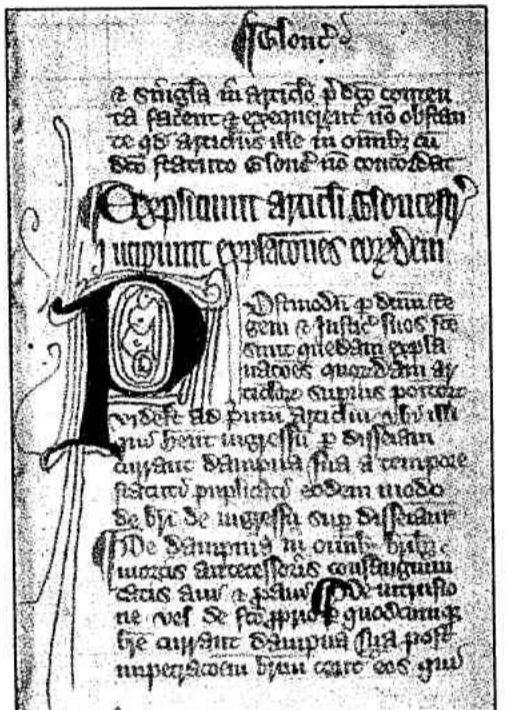 Glouc
& singula in articulo p̄dco conten
ta facerent & exequerent̄ nō obstan
te qd̄ articulus ille in omnibz cū
dco statuto Glouc̄ nō concordat
Expliciunt articli Gloucestr̄
Incipiunt explac̄ones eorȝdem
Postmodū p̄ dnm̄ Re
gem & Justic̄ suos fc̄e
sunt quedam expla
nac̄oes quorȝdam ar
ticlorȝ supius
videlt̄ ad p̄mum articlm̄ ubi illi
qui hent̄ ingressū p̄ disseisam
currant dampna sua a tempore
statuti puplicati eodem modo
de br̄i de ingressu sup̄ disseisam
De dampnis in omibȝ br̄ibȝ
mortis antecessoris consanguini
tatis avi & p̄avi De intrusio
ne vel de fc̄o p̄prio p̄ quodcumqȝ
br̄e currant dampna sua post
impetrac̄oem br̄ium eos qui